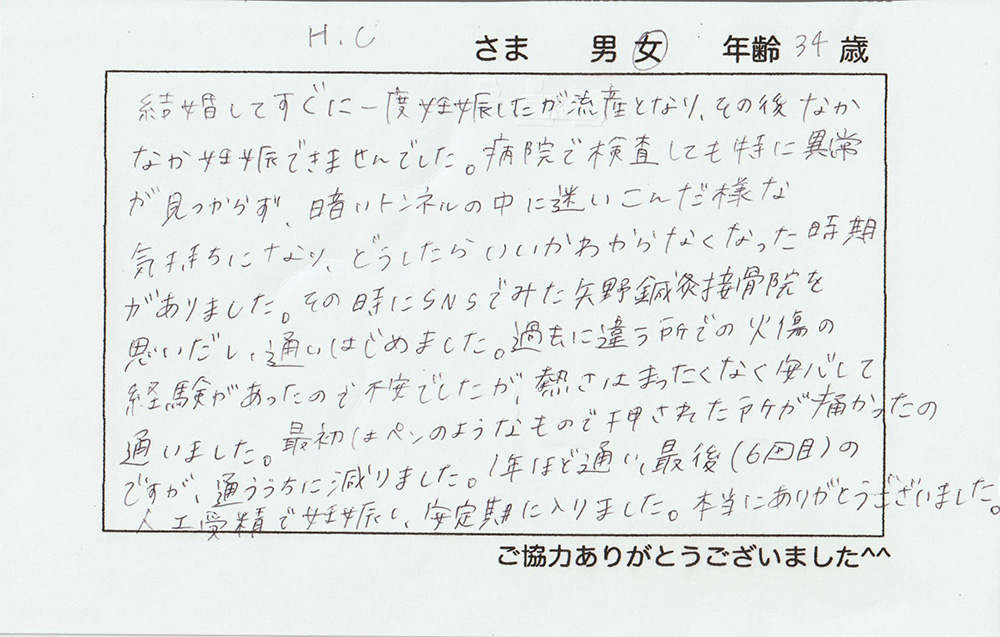 H.C さま 男 女 年齢 34 歳
結婚してすぐに一度妊娠したが流産となり、その後なか
なか妊娠できませんでした。病院で検査しても特に異常
が見つからず、暗いトンネルの中に迷いこんだ様な
気持ちになり、どうしたらいいかわからなくなった時期
がありました。その時にSNSでみた矢野鍼灸接骨院を
思いだし、通いはじめました。過去に違う所での火傷の
経験があったので不安でしたが、熱さはまったくなく安心して
通いました。最初はペンのようなもので押された所が痛かったの
ですが、通ううちに減りました。1年ほど通い、最後(6回目)の
人工受精で妊娠し、安定期に入りました。本当にありがとうございました。
ご協力ありがとうございました^^